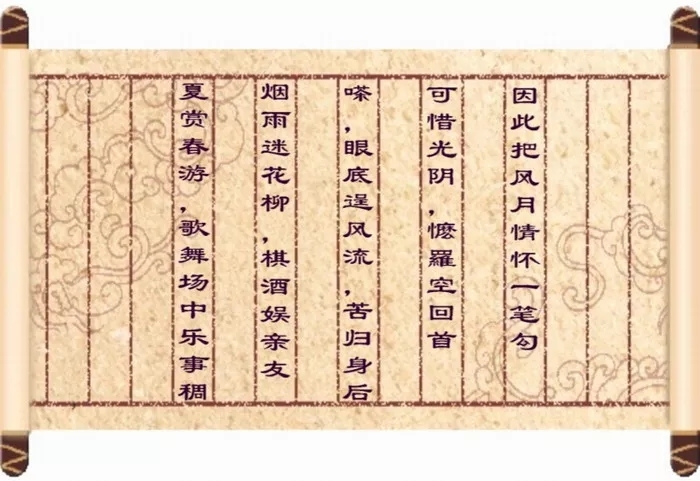 夏赏春游，歌舞场中乐事稠
烟雨迷花柳，棋酒娱亲友
嗏，眼底逞风流，苦归身后
可惜光阴，懡羅空回首
因此把风月情怀一笔勾